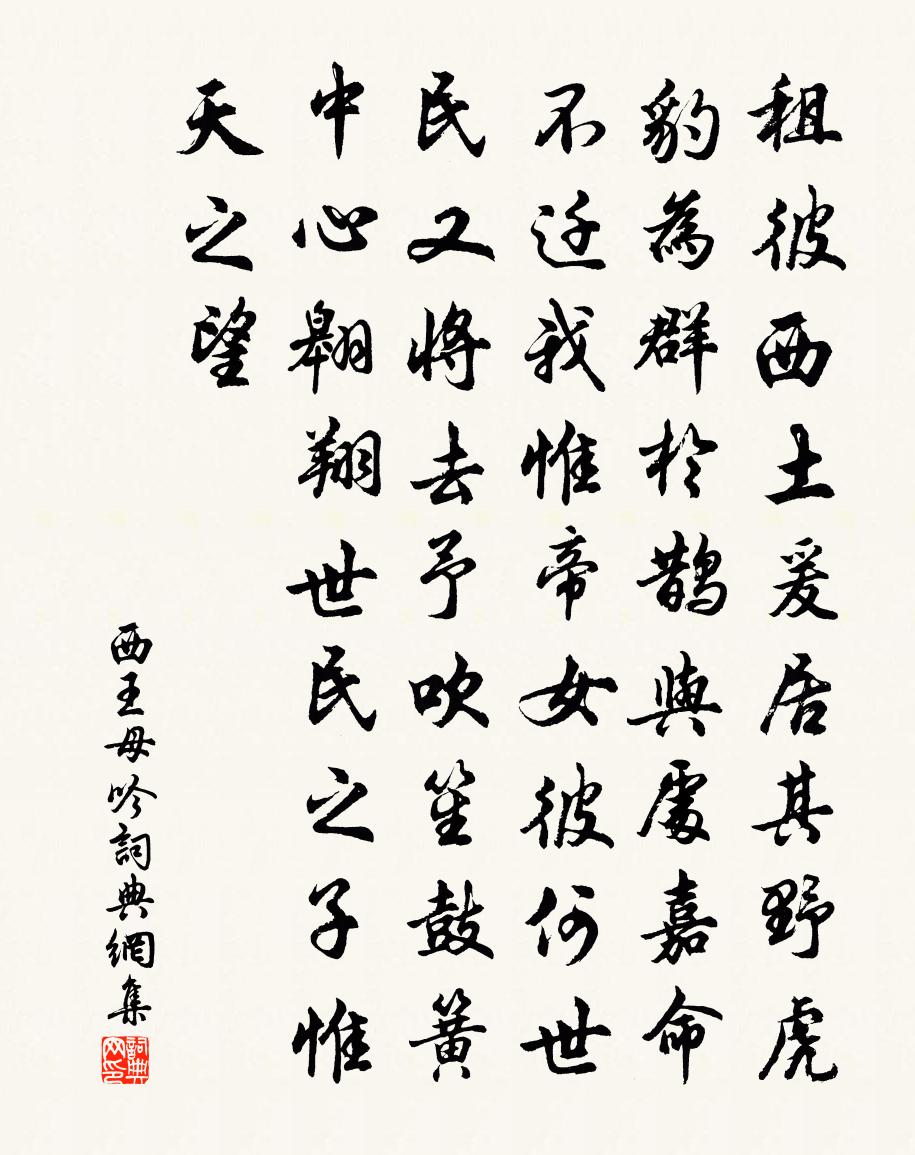 租彼西土爰居其野虎
豹為群於鵲與處嘉命
不迁我惟帝女彼何世
民又將去予吹笙鼓簧
中心翱翔世民之子惟
天之望
西王母吟詞典網集
詞典网印